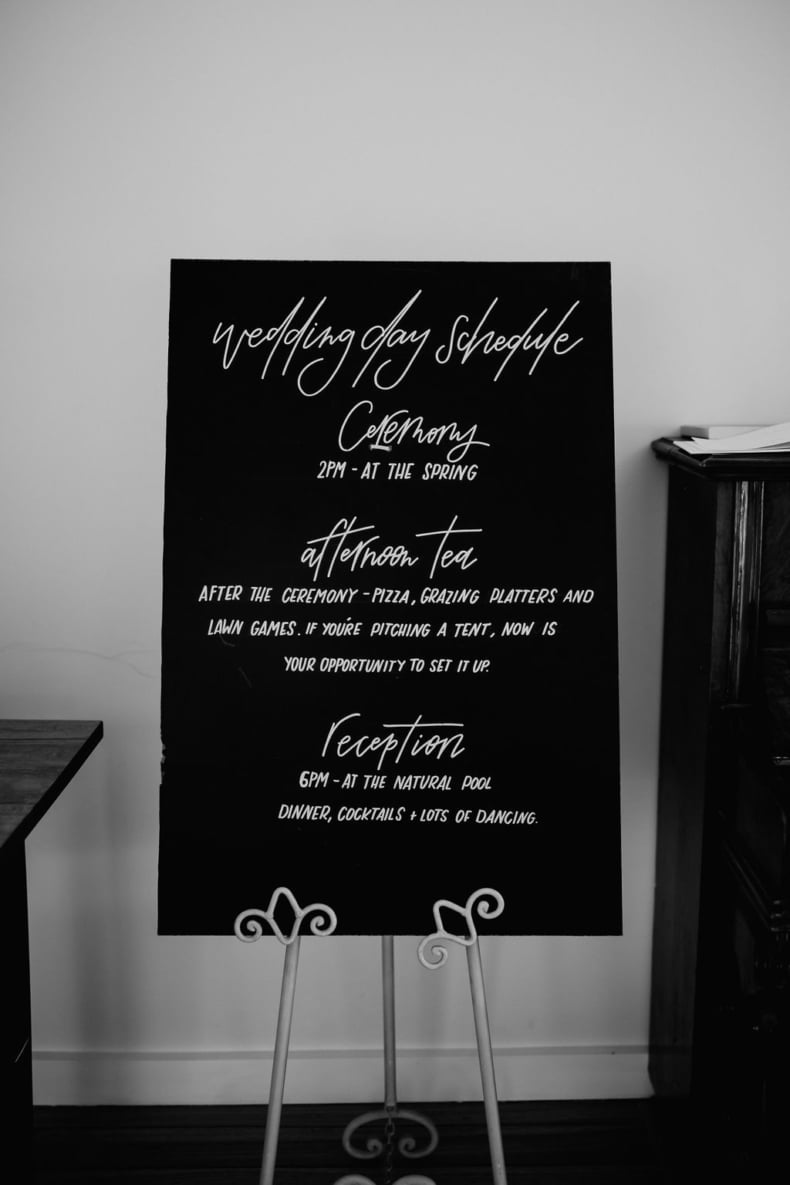 wedding day schedule
Ceremony
2PM - AT THE SPRING
afternoon tea
AFTER THE CEREMONY - PIZZA, GRAZING PLATTERS AND
LAWN GAMES. IF YOU'RE PITCHING A TENT, NOW IS
YOUR OPPORTUNITY TO SET IT UP.
reception
6PM - AT THE NATURAL POOL
DINNER, COCKTAILS + LOTS OF DANCING.